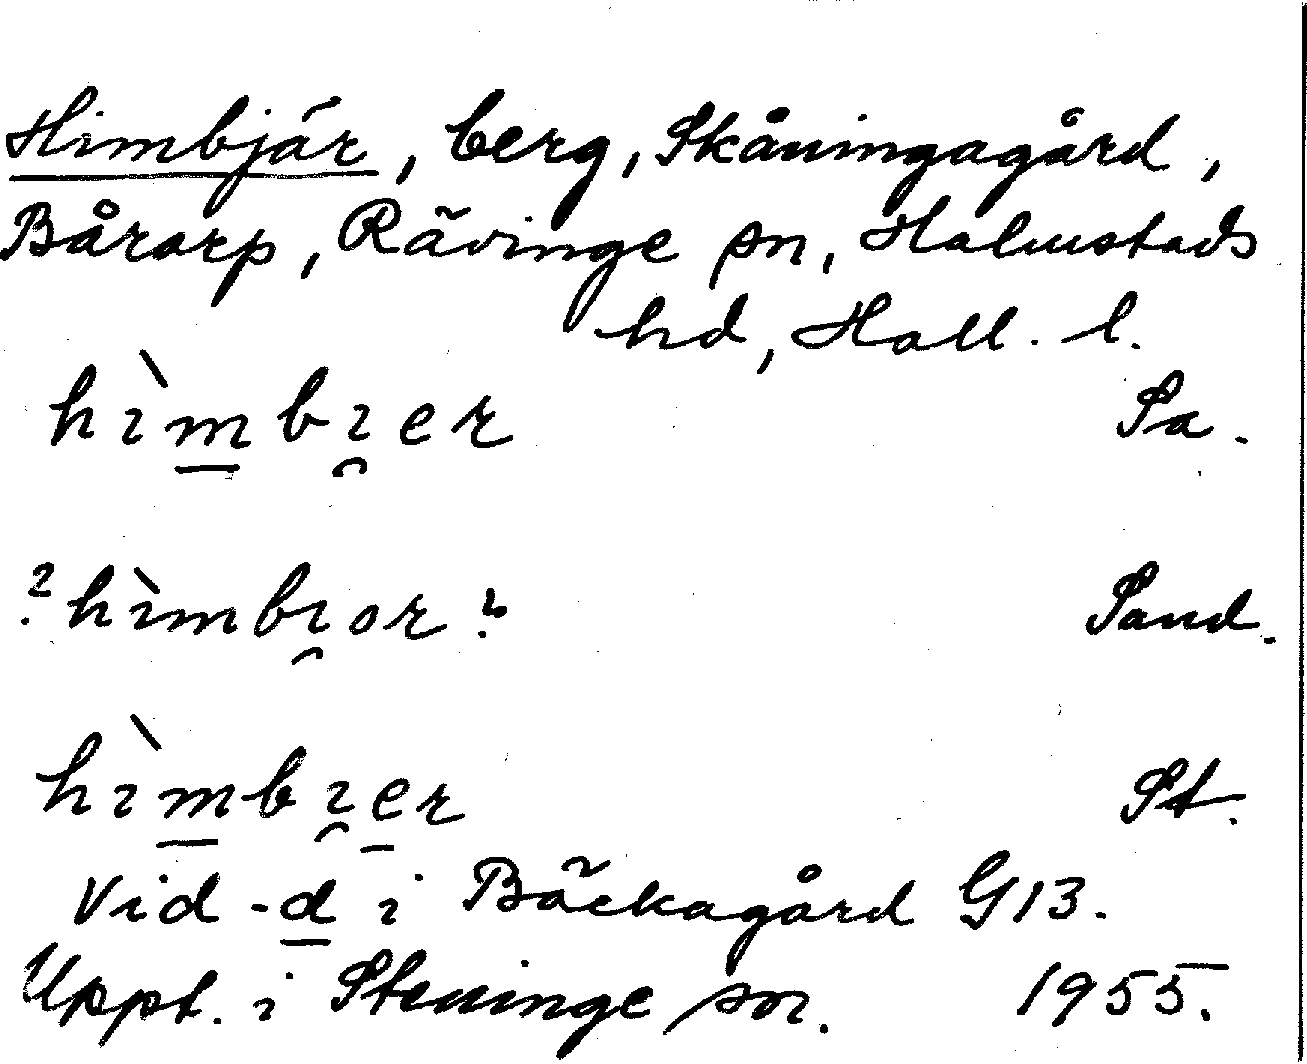 Himbjär, berg, Skåningagård,
Bårarp, Rävinge sn, Halmstads
hd, Hall. l.
hìm̲bı̯er Sa.
? hìmbı̯or ? Sand.
hìm̲bı̯e̲r St.
Vid -d̲ i Bäckagård G13.
Uppt. i Steninge sn. 1955.